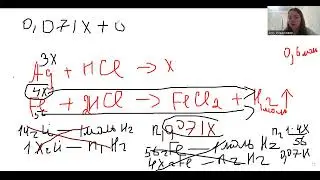 0,071x + 0
0,6 моль
3x
Ag + HCl → x
4x
Fe + 2HCl → FeCl₂ + H₂ ↑
моль
0,071x
n₂ 1·4x
56
0,071x
1 моль H₂
n₁ H₂
56 г Fe — 1 моль H₂
4x г Fe — n₂ H₂